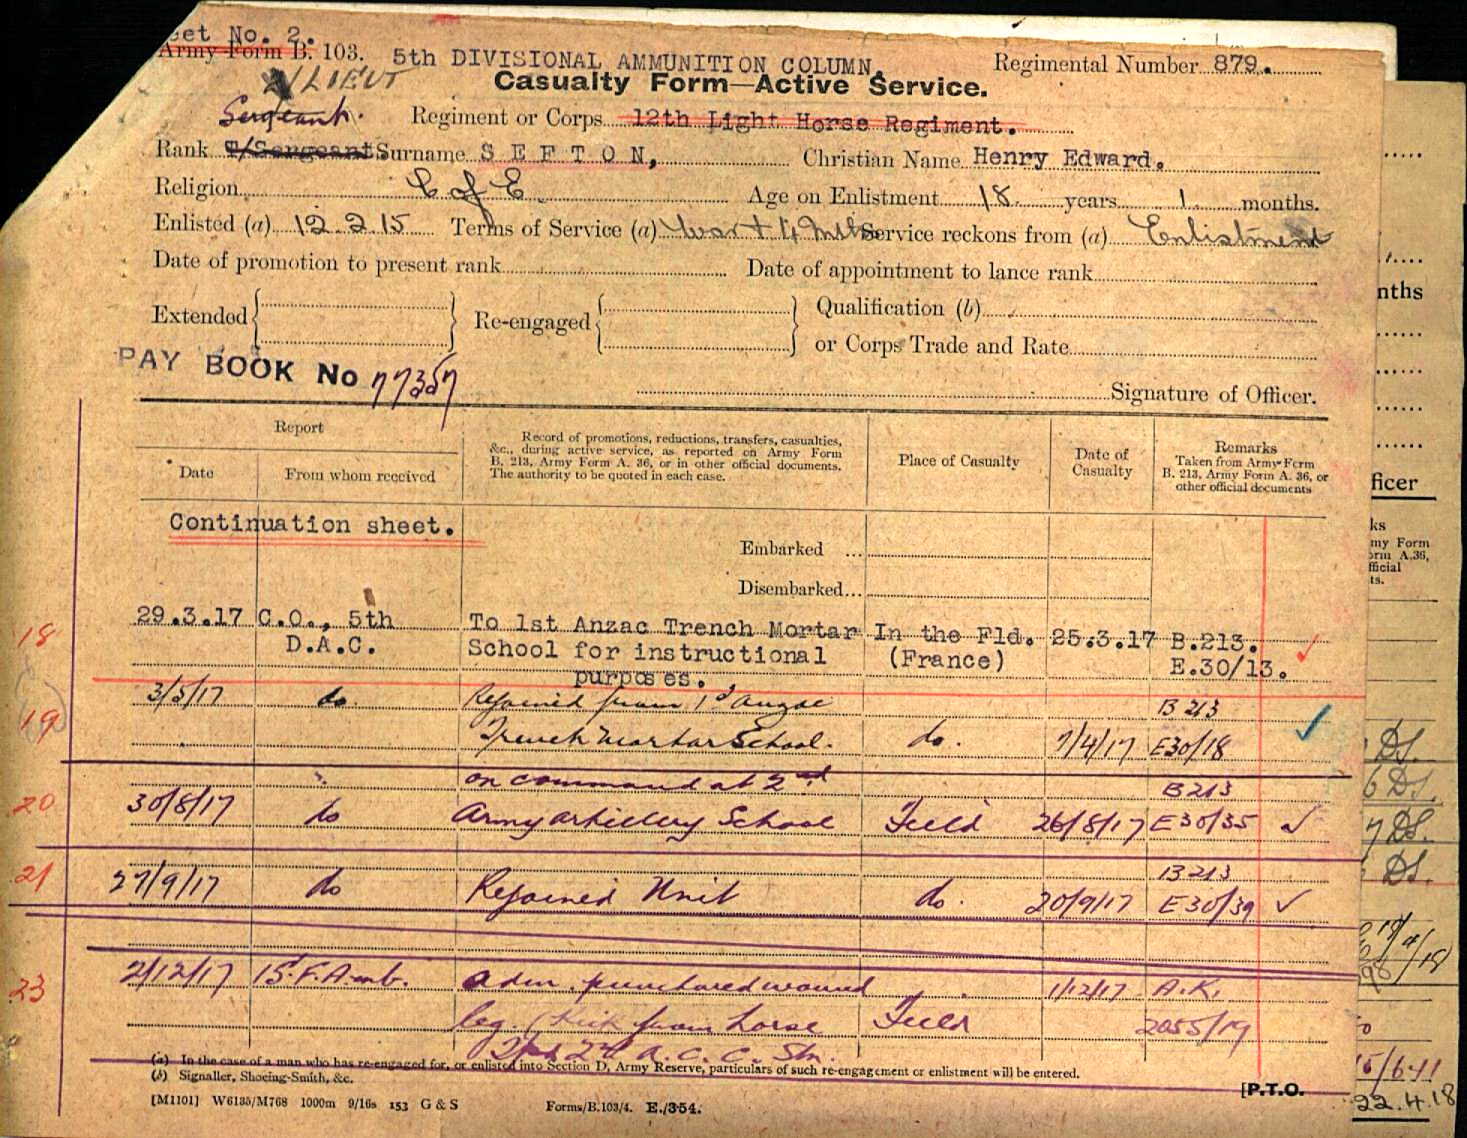 eet No. 2.
Army Form B. 103.
5th DIVISIONAL AMMUNITION COLUMN.
Regimental Number 879.
2/LIEUT
Casualty Form—Active Service.
Sergeant.
Regiment or Corps 12th Light Horse Regiment.
Rank T/Sergeant Surname S E F T O N, Christian Name Henry Edward.
Religion C of E. Age on Enlistment 18 years 1 months.
Enlisted (a) 12.2.15 Terms of Service (a) War + 4 Mths Service reckons from (a) Enlistment
Date of promotion to present rank Date of appointment to lance rank
Extended Re-engaged Qualification (b)
or Corps Trade and Rate
PAY BOOK No 77357
Signature of Officer.
Report
Date
From whom received
Record of promotions, reductions, transfers, casualties,
&c., during active service, as reported on Army Form
B. 213, Army Form A. 36, or in other official documents.
The authority to be quoted in each case.
Place of Casualty
Date of
Casualty
Remarks
Taken from Army Form
B. 213, Army Form A. 36, or
other official documents
Continuation sheet.
Embarked ...
Disembarked...
18 29.3.17 C.O., 5th To 1st Anzac Trench Mortar In the Fld. 25.3.17 B.213.
D.A.C. School for instructional (France) E.30/13.
purposes.
3/5/17 do. Rejoined from 1st Anzac B 213
19 Trench Mortar School. do. 7/4/17 E30/18
on command at 2nd B213
20 30/8/17 do Army Artillery School Field 26/8/17 E30/35
21 B213
27/9/17 do Rejoined Unit do. 20/9/17 E30/39
23 2/12/17 15 F.Amb. adm. punctured wound 1/12/17 A.K.
leg. (Kick from horse Field 2055/19
2nd A.C.C. Stn.
(a) In the case of a man who has re-engaged for, or enlisted into Section D, Army Reserve, particulars of such re-engagement or enlistment will be entered.
(b) Signaller, Shoeing-Smith, &c.
[P.T.O.
[M1101] W6135/M768 1000m 9/16s 153 G & S Forms/B.103/4. E./354.
nths
ficer
ks
my Form
orm A.36,
fficial
ts.
DS.
6 DS.
7 DS.
DS.
22.4.18